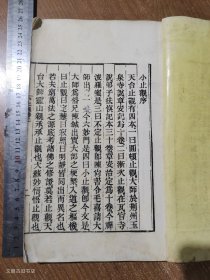 小止觀序
天台止觀有四本一曰圓頓止觀大師於荊州玉
泉寺說章安記為十卷二曰漸次止觀在瓦官寺
說弟子法慎記本三十卷章安治定為十卷今禪
波羅蜜是三曰不定止觀即陳尚書令毛喜請大
師出有一卷今六妙門是四曰小止觀即今文是
大師為俗兄陳鍼出實大部之梗概入道之樞機
曰止觀曰定慧曰寂照曰明靜皆同出而異名也
若夫窮萬法之源底考諸佛之修證莫若止觀天
台大師靈山親承承止觀也大蘇妙悟悟止觀也